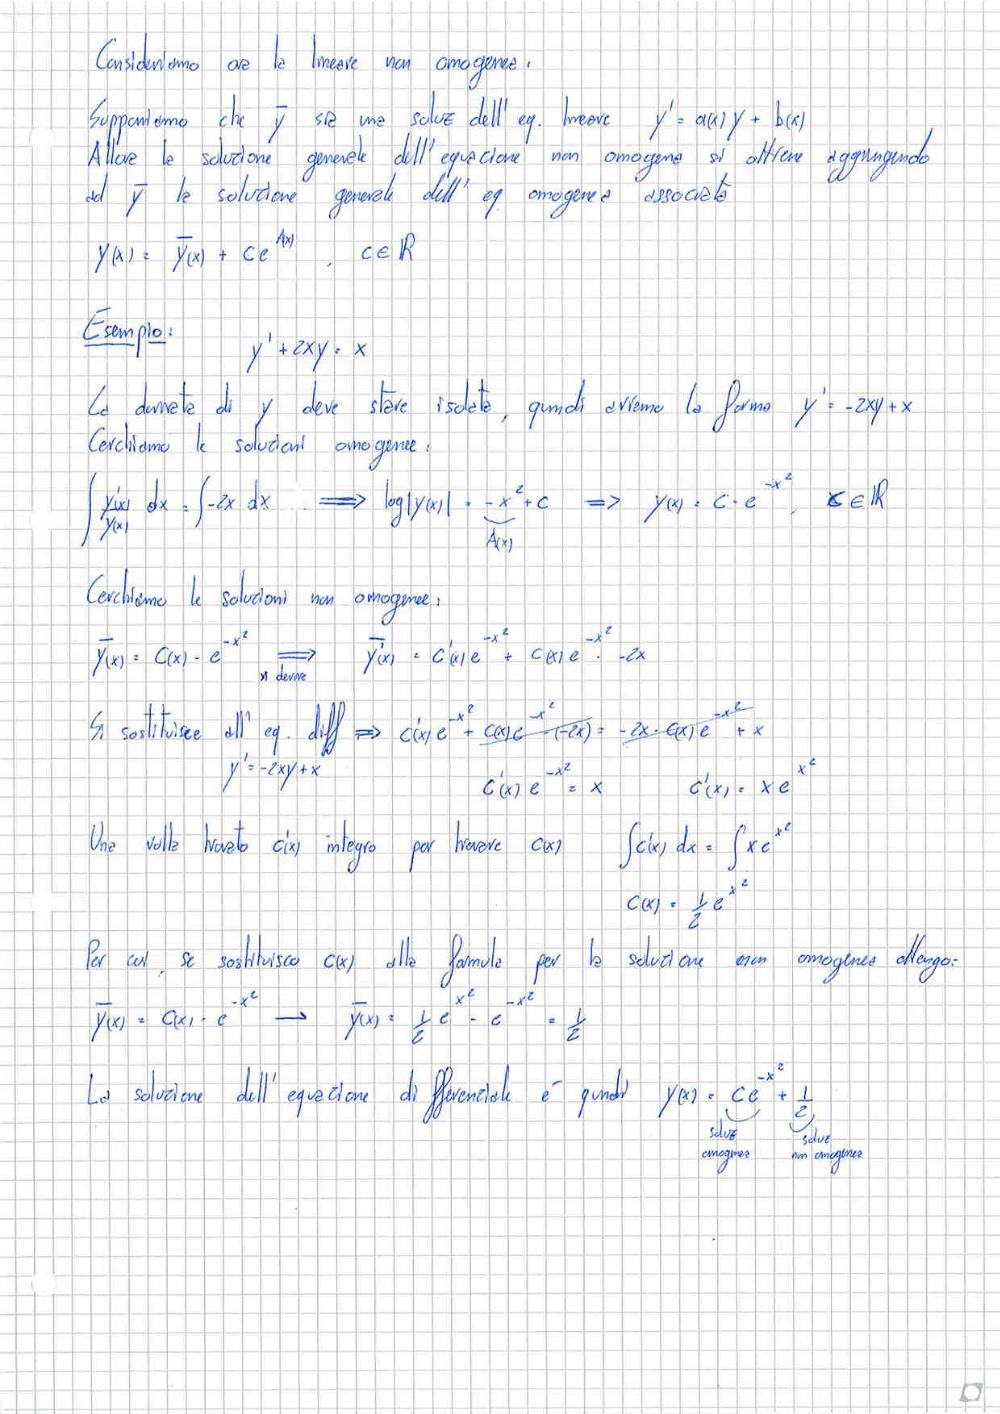 Consideriamo ora la lineare non omogenea:
Supponiamo che ȳ sia una soluz dell' eq. lineare y' = a(x) y + b(x)
Allora la soluzione generale dell'equazione non omogenea si ottiene aggiungendo
ad ȳ la soluzione generale dell' eq. omogenea associata
y(x) = ȳ(x) + C e^{A(x)} , C ∈ ℝ
Esempio:
y' + 2xy = x
La derivata di y deve stare isolata, quindi avremo la forma y' = -2xy + x
Cerchiamo le soluzioni omogenee:
∫ y'(x)/y(x) dx = ∫ -2x dx ⟹ log|y(x)| = -x² + c ⟹ y(x) = C · e^{-x²}, C ∈ ℝ
A(x)
Cerchiamo le soluzioni non omogenee:
ȳ(x) = C(x) · e^{-x²} ⟹ ȳ'(x) = C'(x) e^{-x²} + C(x) e^{-x²} · -2x
si deriva
Si sostituisce all' eq. diff ⟹ C'(x) e^{-x²} + C(x) e^{-x²} (-2x) = -2x · C(x) e^{-x²} + x
y' = -2xy + x
C'(x) e^{-x²} = x C'(x) = x e^{x²}
Una volta trovato C'(x) integro per trovare C(x) ∫ C'(x) dx = ∫ x e^{x²}
C(x) = 1/2 e^{x²}
Per cui, se sostituisco C(x) alla formula per la soluzione non omogenea ottengo:
ȳ(x) = C(x) · e^{-x²} → ȳ(x) = 1/2 e^{x²} · e^{-x²} = 1/2
La soluzione dell' equazione differenziale è quindi y(x) = C e^{-x²} + 1/2
soluz soluz
omogenea non omogenea